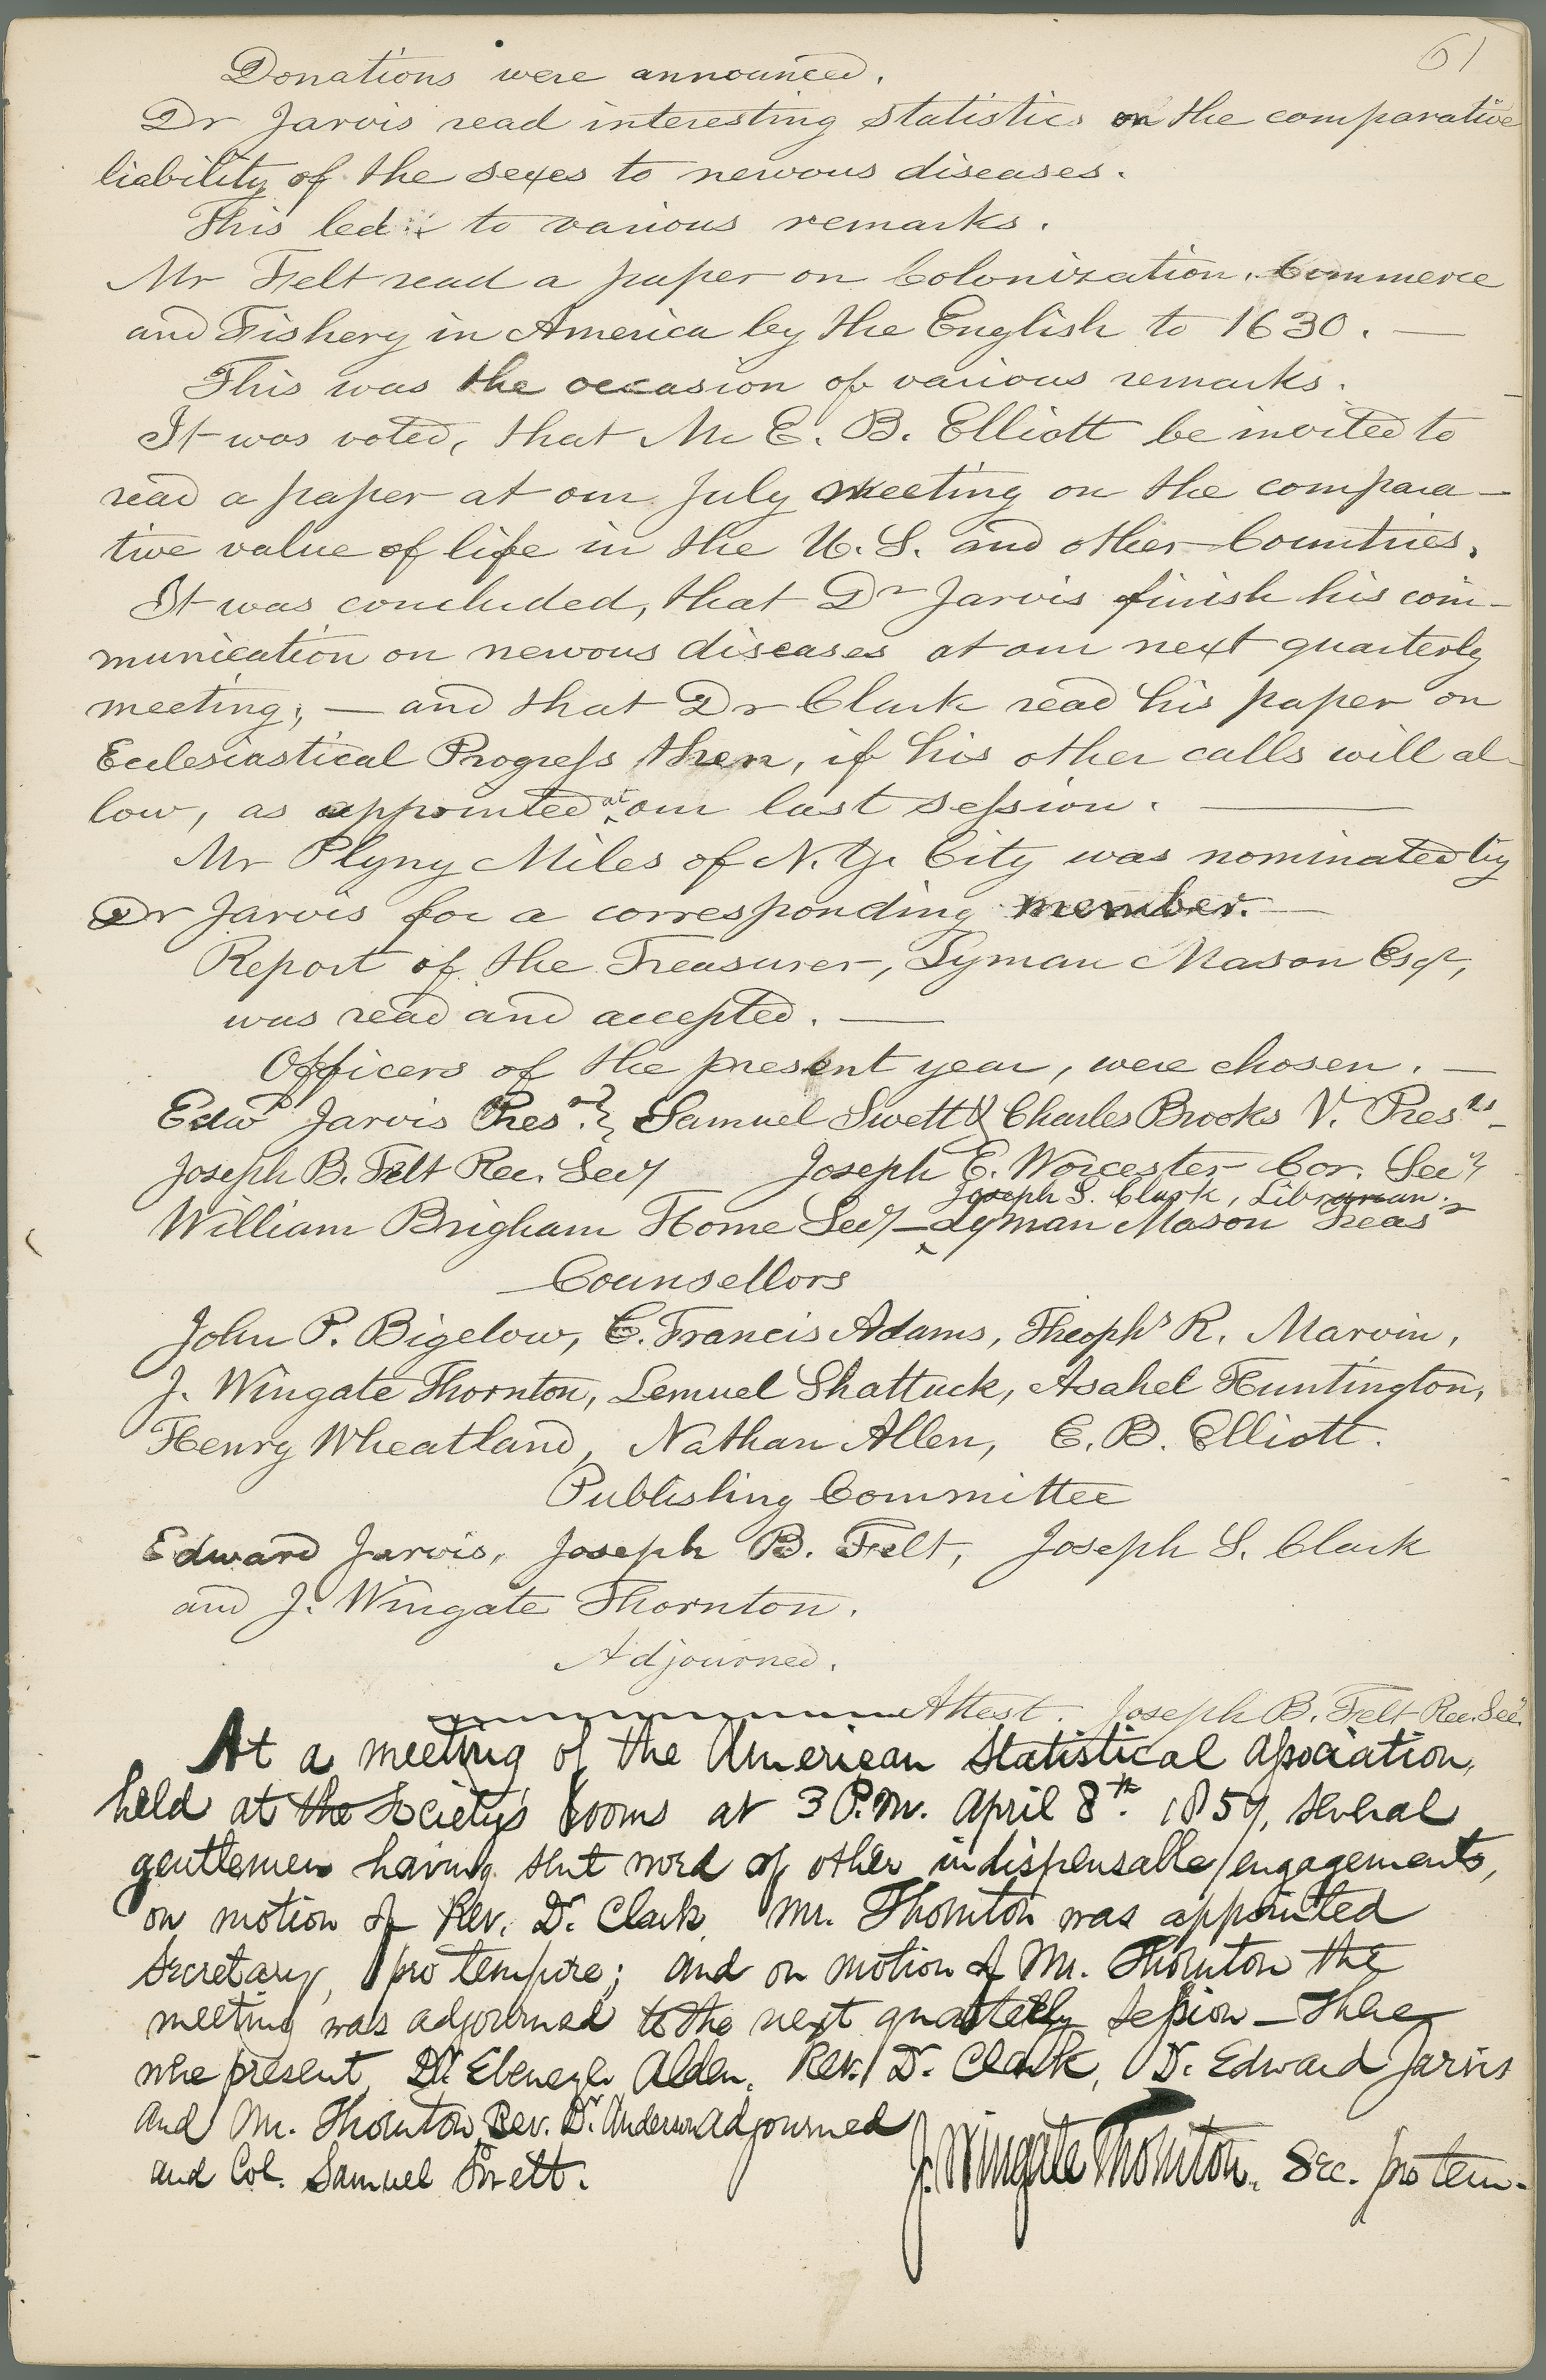 61
Donations were announced.
Dr Jarvis read interesting statistics on the comparative
liability of the sexes to nervous diseases.
This led to various remarks.
Mr Felt read a paper on Colonization, Commerce
and Fishery in America by the English to 1630. —
This was the occasion of various remarks.
It was voted, that Mr E. B. Elliott be invited to
read a paper at our July meeting on the compara-
tive value of life in the U. S. and other Countries.
It was concluded, that Dr Jarvis finish his com-
munication on nervous diseases at our next quarterly
meeting; — and that Dr Clark read his paper on
Ecclesiastical Progress then, if his other calls will al-
low, as appointed at our last session. —
Mr Plyny Miles of N. Y. City was nominated by
Dr Jarvis for a corresponding member. —
Report of the Treasurer, Lyman Mason Esqr,
was read and accepted. —
Officers of the present year, were chosen. —
Edwd Jarvis Prest. } Samuel Swett & Charles Brooks V. Prests -
Joseph B. Felt Rec. Secy Joseph E. Worcester Cor. Secy
Joseph S. Clark, Librarian.
William Brigham Home Secy — Lyman Mason Treasr
Counsellors
John P. Bigelow, C. Francis Adams, Theophs R. Marvin,
J. Wingate Thornton, Lemuel Shattuck, Asahel Huntington,
Henry Wheatland, Nathan Allen, E. B. Elliott.
Publishing Committee
Edward Jarvis, Joseph B. Felt, Joseph S. Clark
and J. Wingate Thornton.
Adjourned.
Attest. Joseph B. Felt Rec. Secy.
At a meeting of the American Statistical Association,
held at the Society's Rooms at 3 P.M. April 8th. 1857, several
gentlemen having sent word of other indispensable engagements,
on motion of Rev. Dr. Clark, Mr. Thornton was appointed
Secretary, pro tempore; and on motion of Mr. Thornton the
meeting was adjourned to the next quarterly session — there
were present, Dr. Ebenezer Alden, Rev. Dr. Clark, Dr. Edward Jarvis
and Mr. Thornton, Rev. Dr. Anderson adjourned
and Col. Samuel Swett.
J. Wingate Thornton, Sec. pro tem.